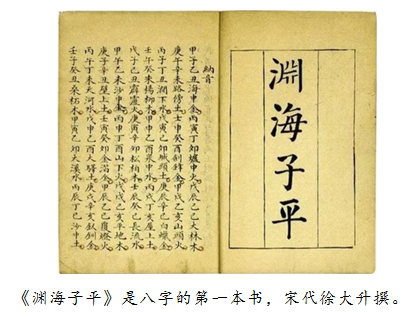 淵海子平
納音
甲子乙丑海中金丙寅丁卯爐中火戊辰己巳大林木
庚午辛未路傍土壬申癸酉劍鋒金甲戌乙亥山頭火
丙子丁丑澗下水戊寅己卯城頭土庚辰辛巳白蠟金
壬午癸未楊柳木甲申乙酉泉中水丙戌丁亥屋上土
戊子己丑霹靂火庚寅辛卯松柏木壬辰癸巳長流水
甲午乙未沙中金丙申丁酉山下火戊戌己亥平地木
庚子辛丑壁上土壬寅癸卯金箔金甲辰乙巳覆燈火
丙午丁未天河水戊申己酉大驛土庚戌辛亥釵釧金
壬子癸丑桑柘木甲寅乙卯大溪水丙辰丁巳沙中土
《渊海子平》是八字的第一本书，宋代徐大升撰。